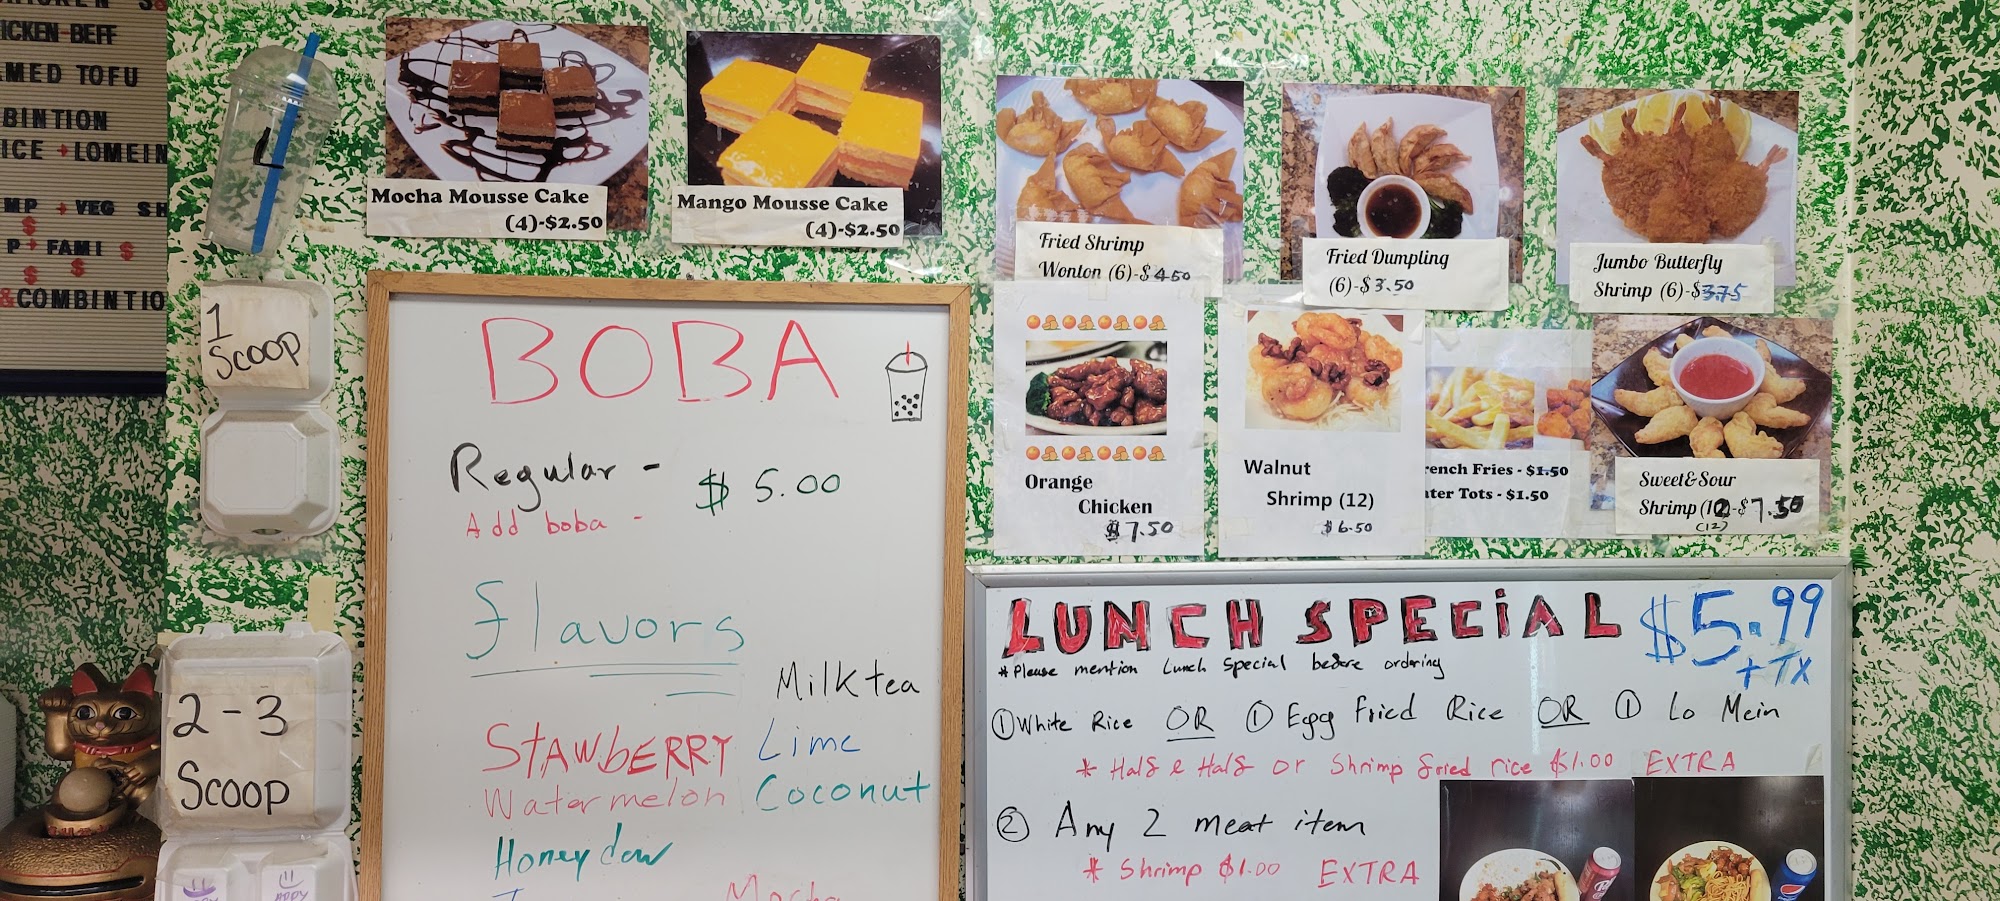 ICKEN-BEFF
MED TOFU
BINTION
ICE + LOMEIN
MP + VEG SH
$
P + FAMI $
$ $
&COMBINTIO
Mocha Mousse Cake
(4)-$2.50
Mango Mousse Cake
(4)-$2.50
Fried Shrimp
Wonton (6)-$4.50
Fried Dumpling
(6)-$3.50
Jumbo Butterfly
Shrimp (6)-$3.75
1
Scoop
2-3
Scoop
BOBA
Regular - $5.00
Add boba -
flavors
Milk tea
STAWbERRY Lime
Watermelon Coconut
Honeydew
Mocha
Orange
Chicken
$7.50
Walnut
Shrimp (12)
$6.50
rench Fries - $1.50
ter Tots - $1.50
Sweet&Sour
Shrimp (12-$7.50
(12)
LUNCH SPECiAL $5.99
+ TX
*Please mention Lunch Special before ordering
① White Rice OR ① Egg Fried Rice OR ① Lo Mein
* Half & Half or Shrimp fried rice $1.00 EXTRA
② Any 2 meat item
* Shrimp $1.00 EXTRA